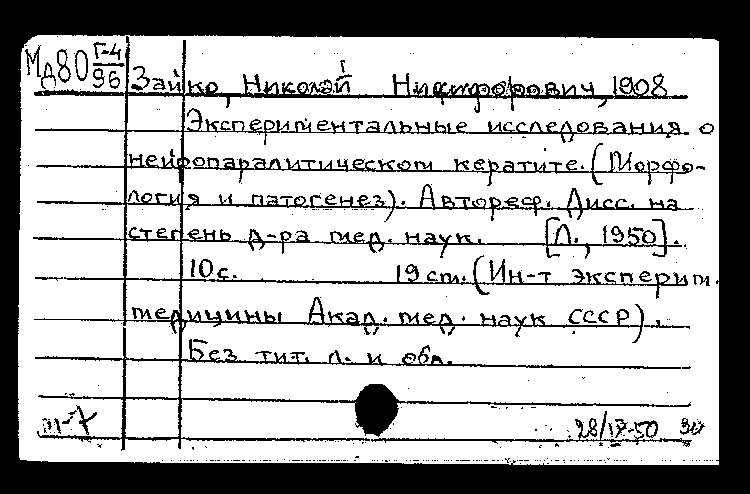 Мд80 Г-4
96
Зайко, Николай Никифорович, 1908
Экспериментальные исследования о
нейропаралитическом кератите. (Морфо-
логия и патогенез). Автореф. Дисс. на
степень д-ра мед. наук. [Л., 1950].
10 с. 19 см. (Ин-т эксперим.
медицины Акад. мед. наук СССР).
Без тит. л. и обл.
т-7
28/IV-50